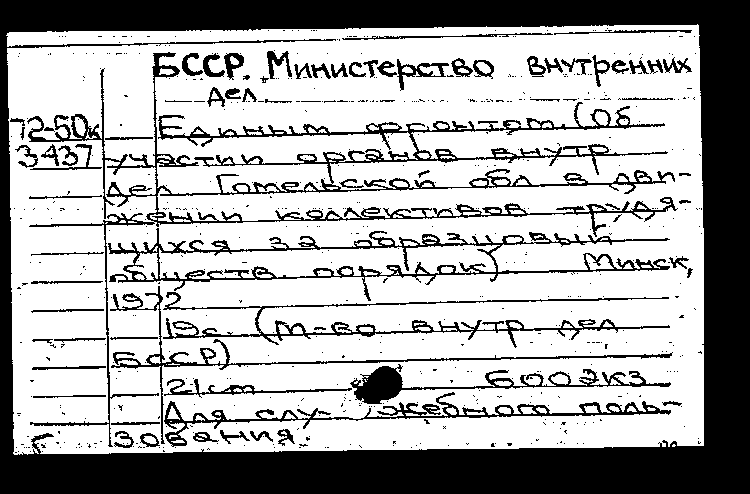 БССР. Министерство внутренних
дел.
72-50к Единым фронтом. (Об
3437 участии органов внутр.
дел Гомельской обл. в дви-
жении коллективов трудя-
щихся за образцовый
обществ. порядок). Минск,
1972
19с. (М-во внутр. дел
БССР)
21cm 600экз
Для слу- жебного поль-
Г зования.